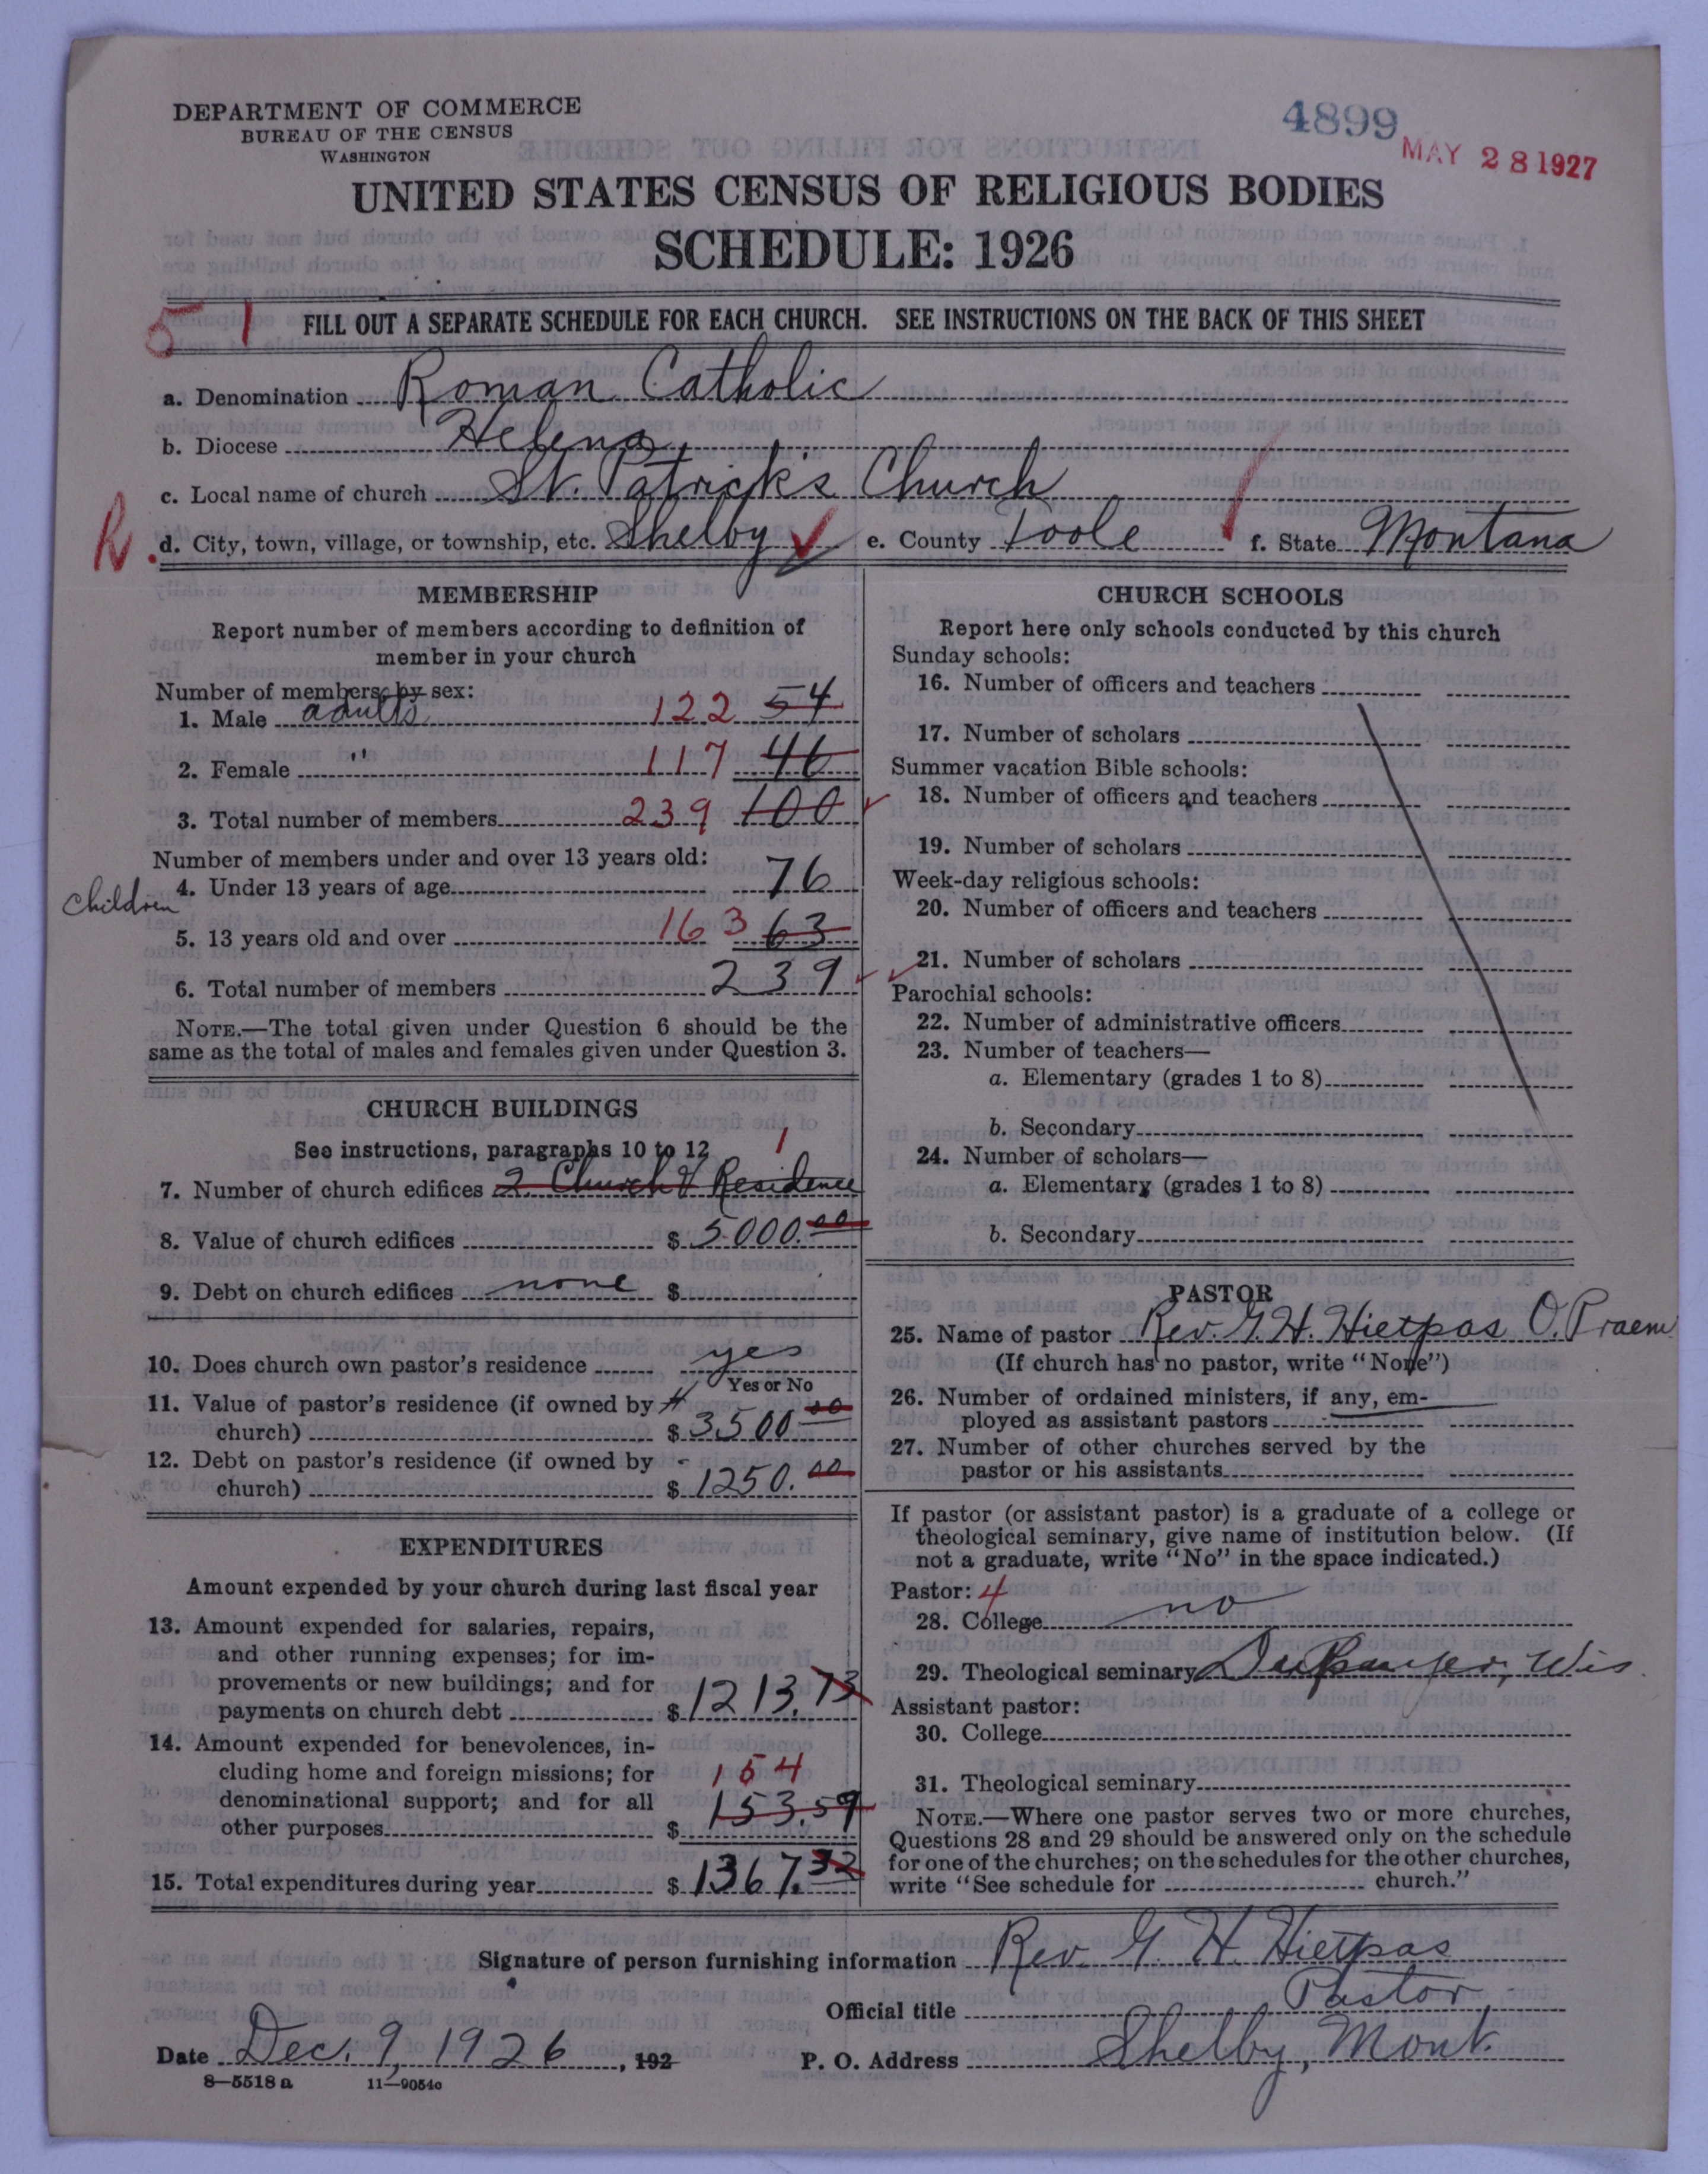 DEPARTMENT OF COMMERCE
BUREAU OF THE CENSUS
WASHINGTON
4899
MAY 28 1927
UNITED STATES CENSUS OF RELIGIOUS BODIES
SCHEDULE: 1926
51
FILL OUT A SEPARATE SCHEDULE FOR EACH CHURCH. SEE INSTRUCTIONS ON THE BACK OF THIS SHEET
a. Denomination Roman Catholic
b. Diocese Helena
c. Local name of church St. Patrick's Church
R. d. City, town, village, or township, etc. Shelby e. County Toole f. State Montana
MEMBERSHIP
Report number of members according to definition of
member in your church
Number of members by sex:
1. Male adults 122 54
2. Female " 117 46
3. Total number of members 239 100
Number of members under and over 13 years old:
children 4. Under 13 years of age 76
5. 13 years old and over 163 63
6. Total number of members 239
NOTE.—The total given under Question 6 should be the
same as the total of males and females given under Question 3.
CHURCH BUILDINGS
See instructions, paragraphs 10 to 12 1
7. Number of church edifices 2. Church & Residence
8. Value of church edifices $ 5000.00
9. Debt on church edifices none $
10. Does church own pastor's residence yes
Yes or No
11. Value of pastor's residence (if owned by
church) $ 3500 00
12. Debt on pastor's residence (if owned by
church) $ 1250.00
EXPENDITURES
Amount expended by your church during last fiscal year
13. Amount expended for salaries, repairs,
and other running expenses; for im-
provements or new buildings; and for
payments on church debt $ 1213.73
14. Amount expended for benevolences, in-
cluding home and foreign missions; for 154
denominational support; and for all 153.59
other purposes $
15. Total expenditures during year $ 1367.32
CHURCH SCHOOLS
Report here only schools conducted by this church
Sunday schools:
16. Number of officers and teachers
17. Number of scholars
Summer vacation Bible schools:
18. Number of officers and teachers
19. Number of scholars
Week-day religious schools:
20. Number of officers and teachers
21. Number of scholars
Parochial schools:
22. Number of administrative officers
23. Number of teachers—
a. Elementary (grades 1 to 8)
b. Secondary
24. Number of scholars—
a. Elementary (grades 1 to 8)
b. Secondary
PASTOR
25. Name of pastor Rev. G. H. Hietpas O. Praem
(If church has no pastor, write "None")
26. Number of ordained ministers, if any, em-
ployed as assistant pastors
27. Number of other churches served by the
pastor or his assistants
If pastor (or assistant pastor) is a graduate of a college or
theological seminary, give name of institution below. (If
not a graduate, write "No" in the space indicated.)
Pastor: 4
28. College no
29. Theological seminary Wis
Assistant pastor:
30. College
31. Theological seminary
NOTE.—Where one pastor serves two or more churches,
Questions 28 and 29 should be answered only on the schedule
for one of the churches; on the schedules for the other churches,
write "See schedule for church."
Signature of person furnishing information Rev. G. H. Hietpas
Official title Pastor,
Date Dec. 9, 1926, 192 P. O. Address Shelby, Mont.
8—5518 a 11—9054c